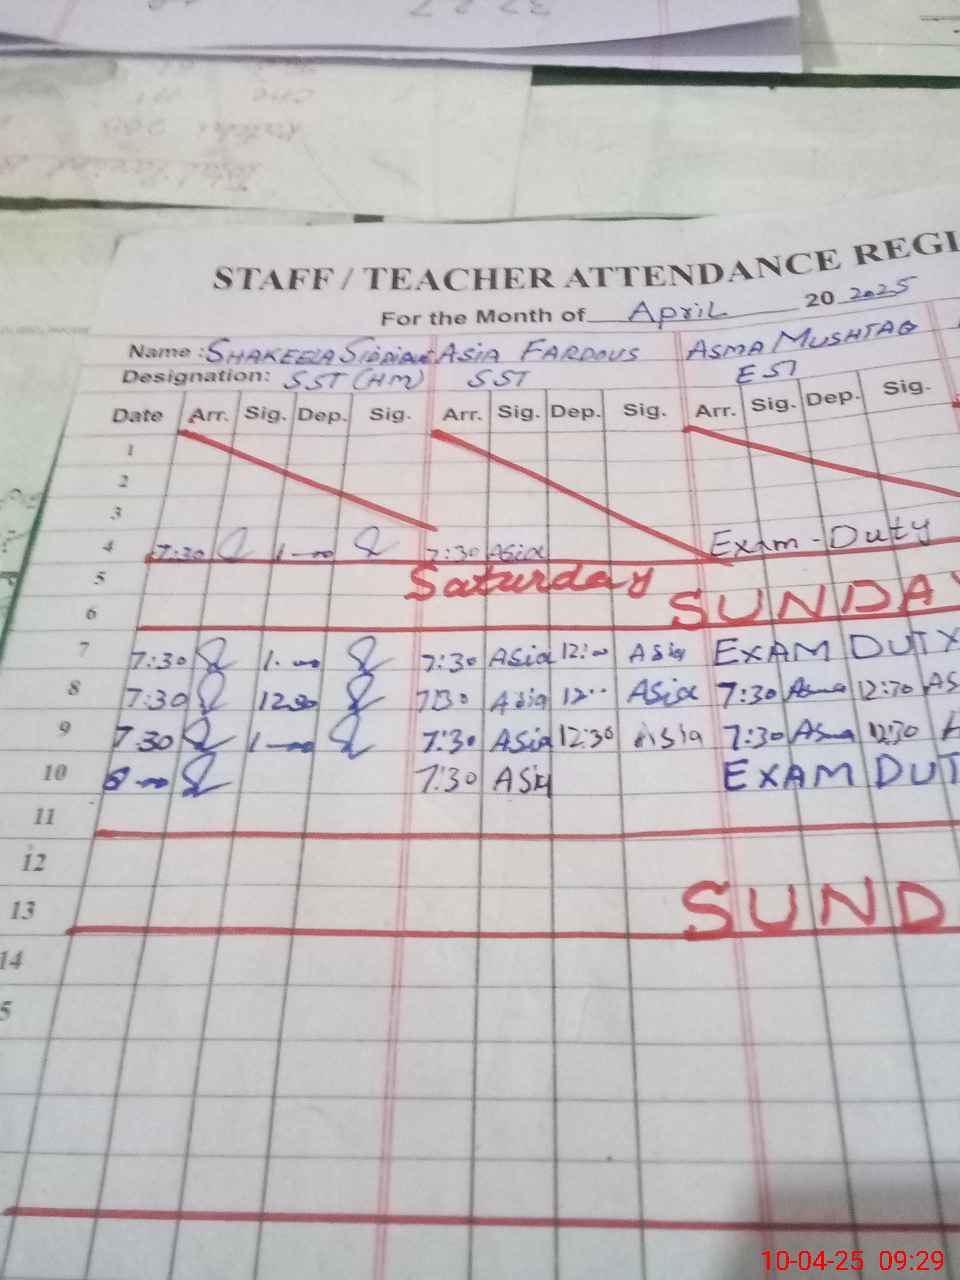 STAFF / TEACHER ATTENDANCE REGI
For the Month of April 20 2025
Name : SHAKEELA SIDDIQUE ASIA FARDOUS ASMA MUSHTAQ
Designation: SST (HM) SST EST
Date Arr. Sig. Dep. Sig. Arr. Sig. Dep. Sig. Arr. Sig. Dep. Sig.
1
2
3
4 7:30 1-00 7:30 Asia Exam - Duty
5 Saturday
6 SUNDAY
7 7:30 1.00 7:30 Asia 12:00 Asia EXAM DUTY
8 7:30 1200 7:30 Asia 12.. Asia 7:30 Asma 12:30 AS
9 7:30 1-00 7:30 Asia 12:30 Asia 7:30 Asma 12:30 A
10 8-00 7:30 EXAM DUT
11
12
13 SUND
14
5
10-04-25 09:29